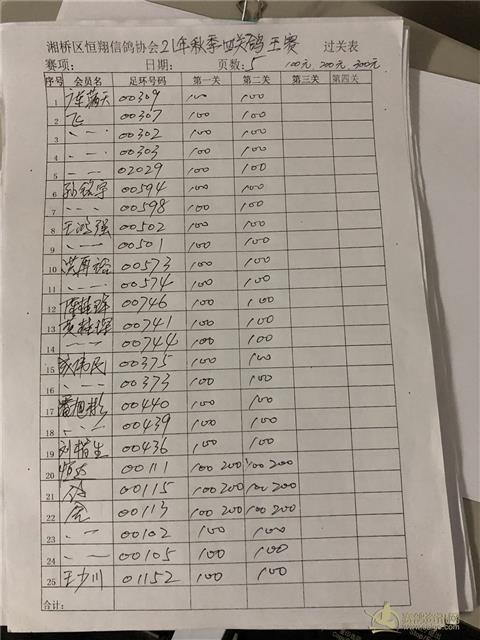 湘桥区恒翔信鸽协会21年秋季四关鸽王赛 过关表
赛项: 日期: 页数: 5 100元 200元 300元
序号 会员名 足环号码 第一关 第二关 第三关 第四关
1 满天 00309 100 100
2 飞 00307 100 100
3 、一一 00302 100 100
4 、一一 00303 100 100
5 一一 02029 100 100
6 孙铭宇 00594 100 100
7 、、、 00598 100 100
8 王鸿强 00502 100 100
9 、一一 00501 100 100
10 00573 100 100
11 、一一 00574 100 100
12 陈桂锋 00746 100 100
13 黄桂琛 00741 100 100
14 一一 00744 100 100
15 伟民 00375 100 100
16 、一一 00373 100 100
17 旭彬 00440 100 100
18 、、一 00439 100 100
19 刘楷生 00436 100 100
20 00111 100 200 100 200
21 00115 100 200 100 200
22 00113 100 200 100 200
23 、一 00102 100 100
24 、一 00105 100 100
25 王少川 01152 100 100
合计: